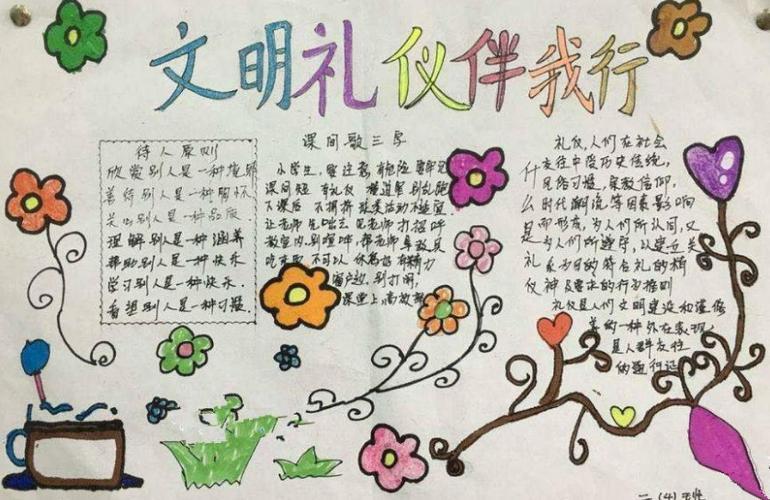 文明礼仪伴我行
待人原则
欣赏别人是一种
善待别人是一种胸怀
关心别人是一种品质.
理解别人是一种涵养
帮助别人是一种快乐
学习别人是一种
看望别人是一种习惯.
课间歌三字
小学生,要注意,有危险要牢记
课间短 有礼仪 楼道里别乱跑
下课后 不拥挤 活动不
让老师先出去见老师打招呼
教室内,别喧哗,帮老师拿教具
不可以
窗户边,别打闹,
课堂上高效
礼仪,人们在社会
交往中受历史传统,
风俗习惯,宗教信仰,
时代潮流等因素影响
而形成,为人们所认同,又
为人们所遵守,以建立
系为目的符合礼的精
神及要求的行为准则
什么是礼仪
礼仪是人们文明建设和
的一种外在表现,
是人群交往
的通行证
二(4)班